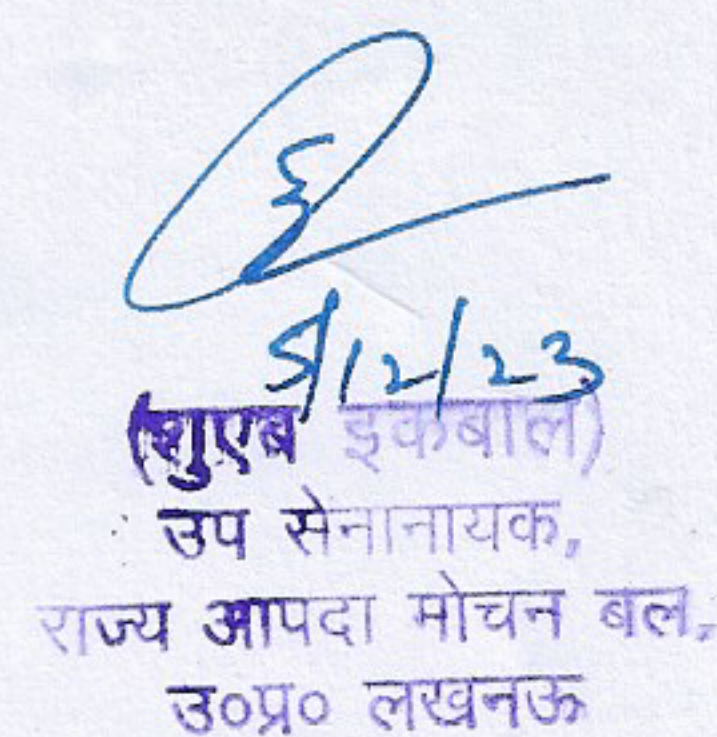 5/12/23
(शुएब इकबाल)
उप सेनानायक,
राज्य आपदा मोचन बल,
उ०प्र० लखनऊ